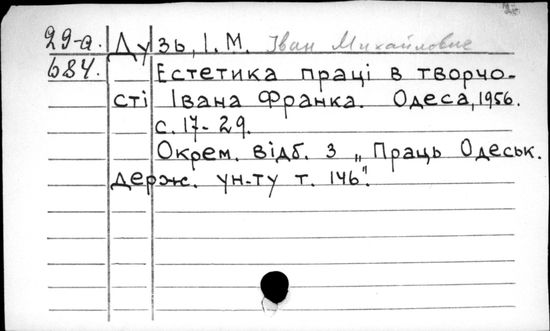 29-а. Дузь, І. М. Іван Михайлович
684. Естетика праці в творчо-
сті Івана Франка. Одеса, 1956.
с. 17-29.
Окрем. відб. з „Праць Одеськ.
держ. ун-ту т. 146".